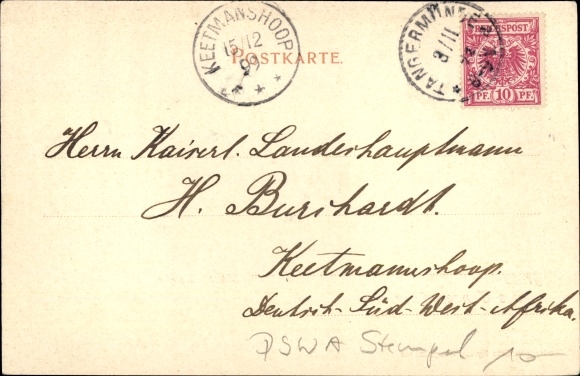 KEETMANSHOOP
15/12
99
POSTKARTE.
TANGERMÜNDE
8/11
REICHSPOST
PF. 10 PF.
Herrn Kaiserl. Landeshauptmann
H. Burchardt.
Keetmannshoop.
Deutsch-Süd-West-Afrika.
DSWA Stempel 10